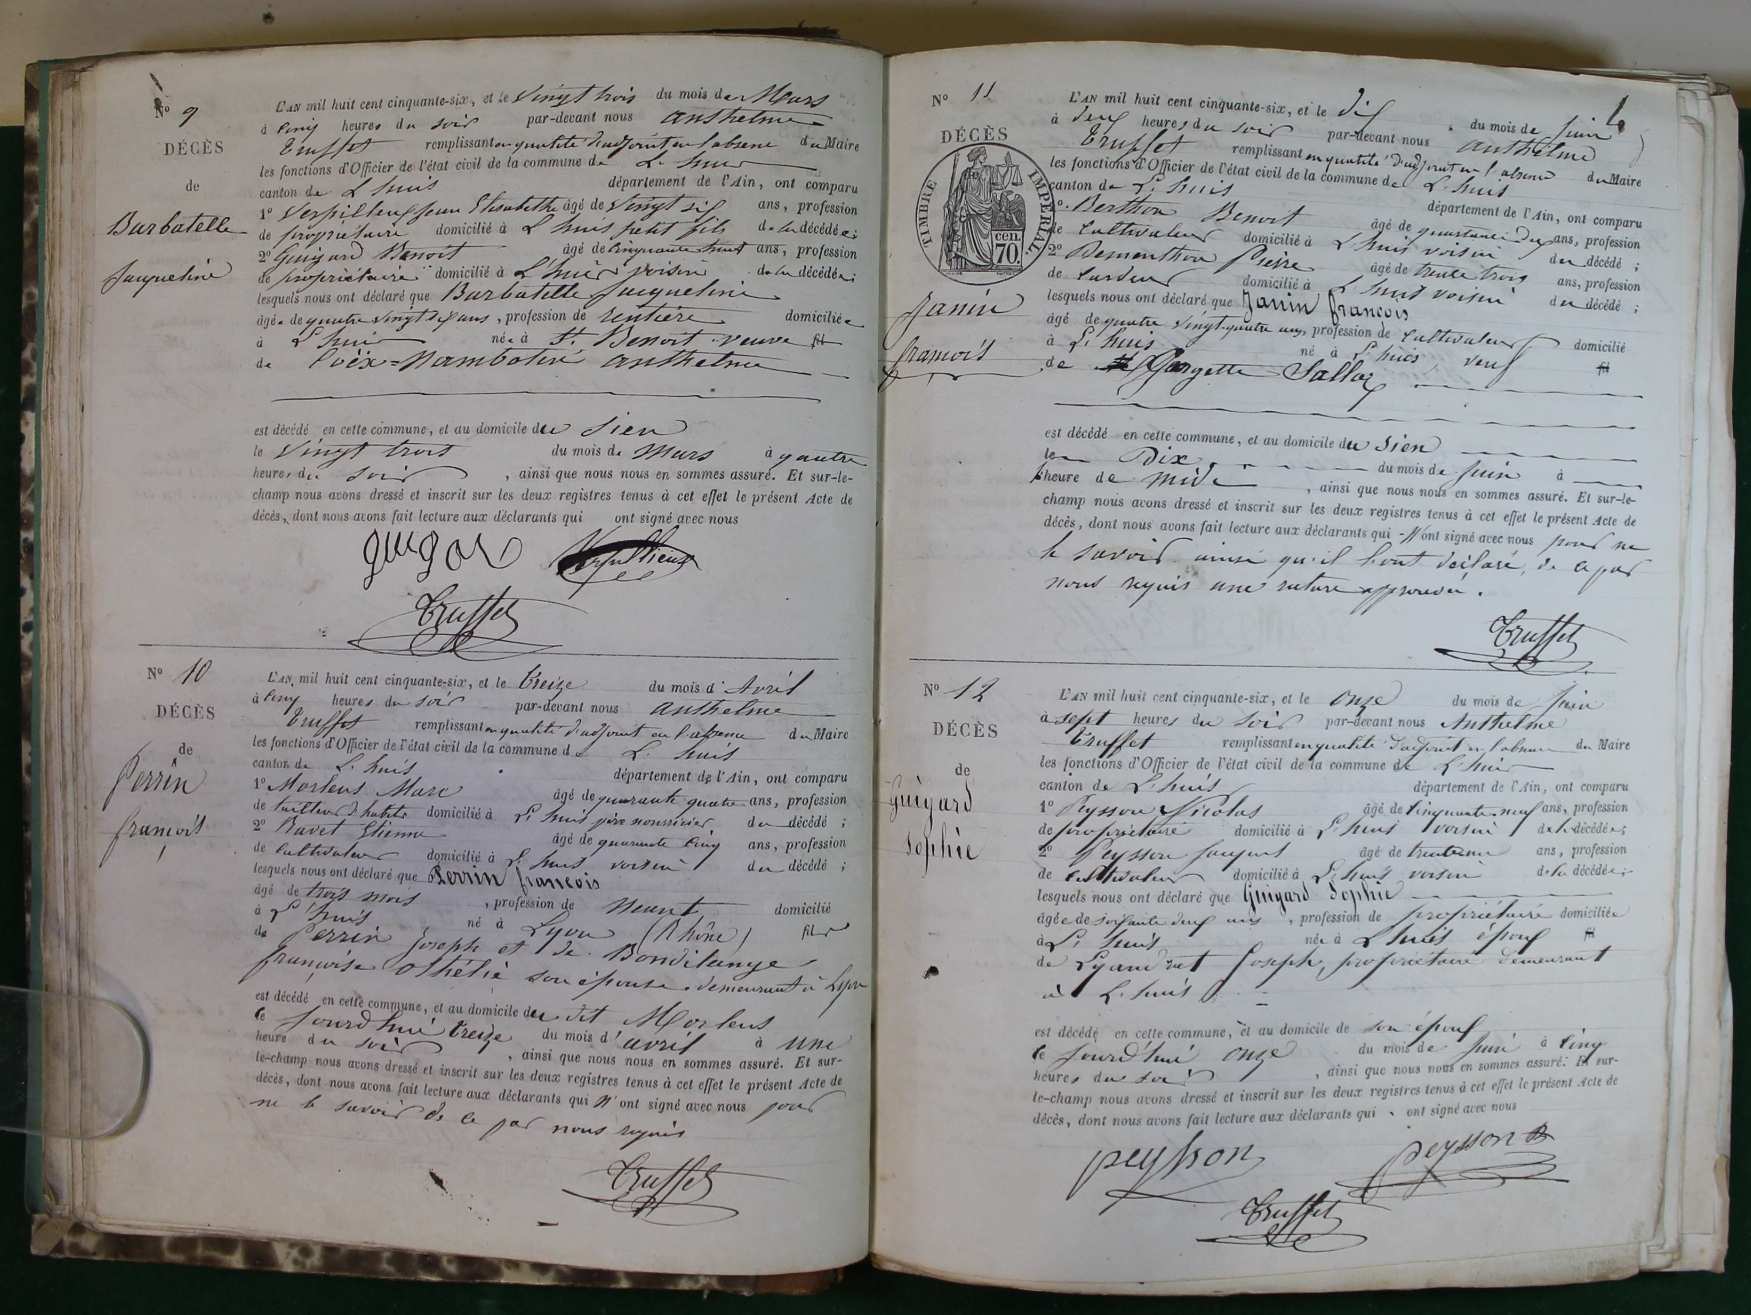 N° 9
DÉCÈS
de
Barbatelle
Jacqueline
L'AN mil huit cent cinquante-six, et le vingt trois du mois de Mars
à cinq heures du soir par-devant nous Anthelme
Truffet remplissant en qualité d'adjoint en l'absence du Maire
les fonctions d'Officier de l'état civil de la commune de L'huis
canton de L'huis département de l'Ain, ont comparu
1° Verpilleux Jean Elisabethe âgé de vingt six ans, profession
de propriétaire domicilié à L'huis petit fils de la décédée;
2° Guigard Benoit âgé de cinquante huit ans, profession
de propriétaire domicilié à L'huis voisin de la décédée;
lesquels nous ont déclaré que Barbatelle Jacqueline
âgée de quatre vingt six ans, profession de rentière domiciliée
à L'huis née à St. Benoit veuve fil
de anthelme
est décédé en cette commune, et au domicile du sien
le vingt trois du mois de Mars à quatre
heures du soir, ainsi que nous nous en sommes assuré. Et sur-le-
champ nous avons dressé et inscrit sur les deux registres tenus à cet effet le présent Acte de
décès, dont nous avons fait lecture aux déclarants qui ont signé avec nous
Guigard Verpillieux
Truffet
N° 10
DÉCÈS
de
Perrin
françois
L'AN mil huit cent cinquante-six, et le treize du mois d'Avril
à cinq heures du soir par-devant nous Anthelme
Truffet remplissant en qualité d'adjoint en l'absence du Maire
les fonctions d'Officier de l'état civil de la commune de L'huis
canton de L'huis département de l'Ain, ont comparu
1° Morlens Marc âgé de quarante quatre ans, profession
de tailleur d'habits domicilié à L'huis père nourricier du décédé;
2° Ravet Etienne âgé de quarante cinq ans, profession
de cultivateur domicilié à L'huis voisin du décédé;
lesquels nous ont déclaré que Perrin françois
âgé de trois mois, profession de Neant domicilié
à L'huis né à Lyon (Rhône) fils
de Perrin Joseph et de Bondilange
françoise Othélie son épouse demeurant à Lyon
est décédé en cette commune, et au domicile du dit Morlens
le jourd'hui treize du mois d'avril à une
heure du soir, ainsi que nous nous en sommes assuré. Et sur-
le-champ nous avons dressé et inscrit sur les deux registres tenus à cet effet le présent Acte de
décès, dont nous avons fait lecture aux déclarants qui N'ont signé avec nous pour
ne le savoir de ce par nous requis
Truffet
N° 11
DÉCÈS
TIMBRE IMPÉRIAL
cen.
70.
Janin
françois
L'AN mil huit cent cinquante-six, et le dix du mois de Juin
à deux heures du soir par-devant nous Anthelme
Truffet remplissant en qualité d'adjoint en l'absence du Maire
les fonctions d'Officier de l'état civil de la commune de L'huis
canton de L'huis département de l'Ain, ont comparu
1° Berthon Benoit âgé de quarante deux ans, profession
de cultivateur domicilié à L'huis voisin du décédé;
2° Dementhon Pierre âgé de trente trois ans, profession
de cardeur domicilié à L'huis voisin du décédé;
lesquels nous ont déclaré que Janin françois
âgé de quatre vingt quatre ans, profession de cultivateur domicilié
à L'huis né à L'huis veuf fil
de Gorgette Salloz
est décédé en cette commune, et au domicile du sien
le Dix du mois de Juin à
heure de midi, ainsi que nous nous en sommes assuré. Et sur-le-
champ nous avons dressé et inscrit sur les deux registres tenus à cet effet le présent Acte de
décès, dont nous avons fait lecture aux déclarants qui N'ont signé avec nous pour ne
le savoir ainsi qu'il l'ont déclaré, de ce par
nous requis une rature approuvée.
Truffet
N° 12
DÉCÈS
de
Guigard
Sophie
L'AN mil huit cent cinquante-six, et le onze du mois de Juin
à sept heures du soir par-devant nous Anthelme
Truffet remplissant en qualité d'adjoint en l'absence du Maire
les fonctions d'Officier de l'état civil de la commune de L'huis
canton de L'huis département de l'Ain, ont comparu
1° Peysson Nicolas âgé de cinquante neuf ans, profession
de propriétaire domicilié à L'huis voisin de la décédée;
2° Peysson Jacques âgé de trente ans, profession
de cultivateur domicilié à L'huis voisin de la décédée;
lesquels nous ont déclaré que Guigard Sophie
âgée de soixante deux ans, profession de propriétaire domiciliée
à L'huis née à L'huis épouse fil
de Lyaudrat Joseph, propriétaire demeurant
à L'huis
est décédé en cette commune, et au domicile de son époux
le jourd'hui onze du mois de Juin à cinq
heures du soir, ainsi que nous nous en sommes assuré. Et sur-
le-champ nous avons dressé et inscrit sur les deux registres tenus à cet effet le présent Acte de
décès, dont nous avons fait lecture aux déclarants qui ont signé avec nous
peysson peysson
Truffet